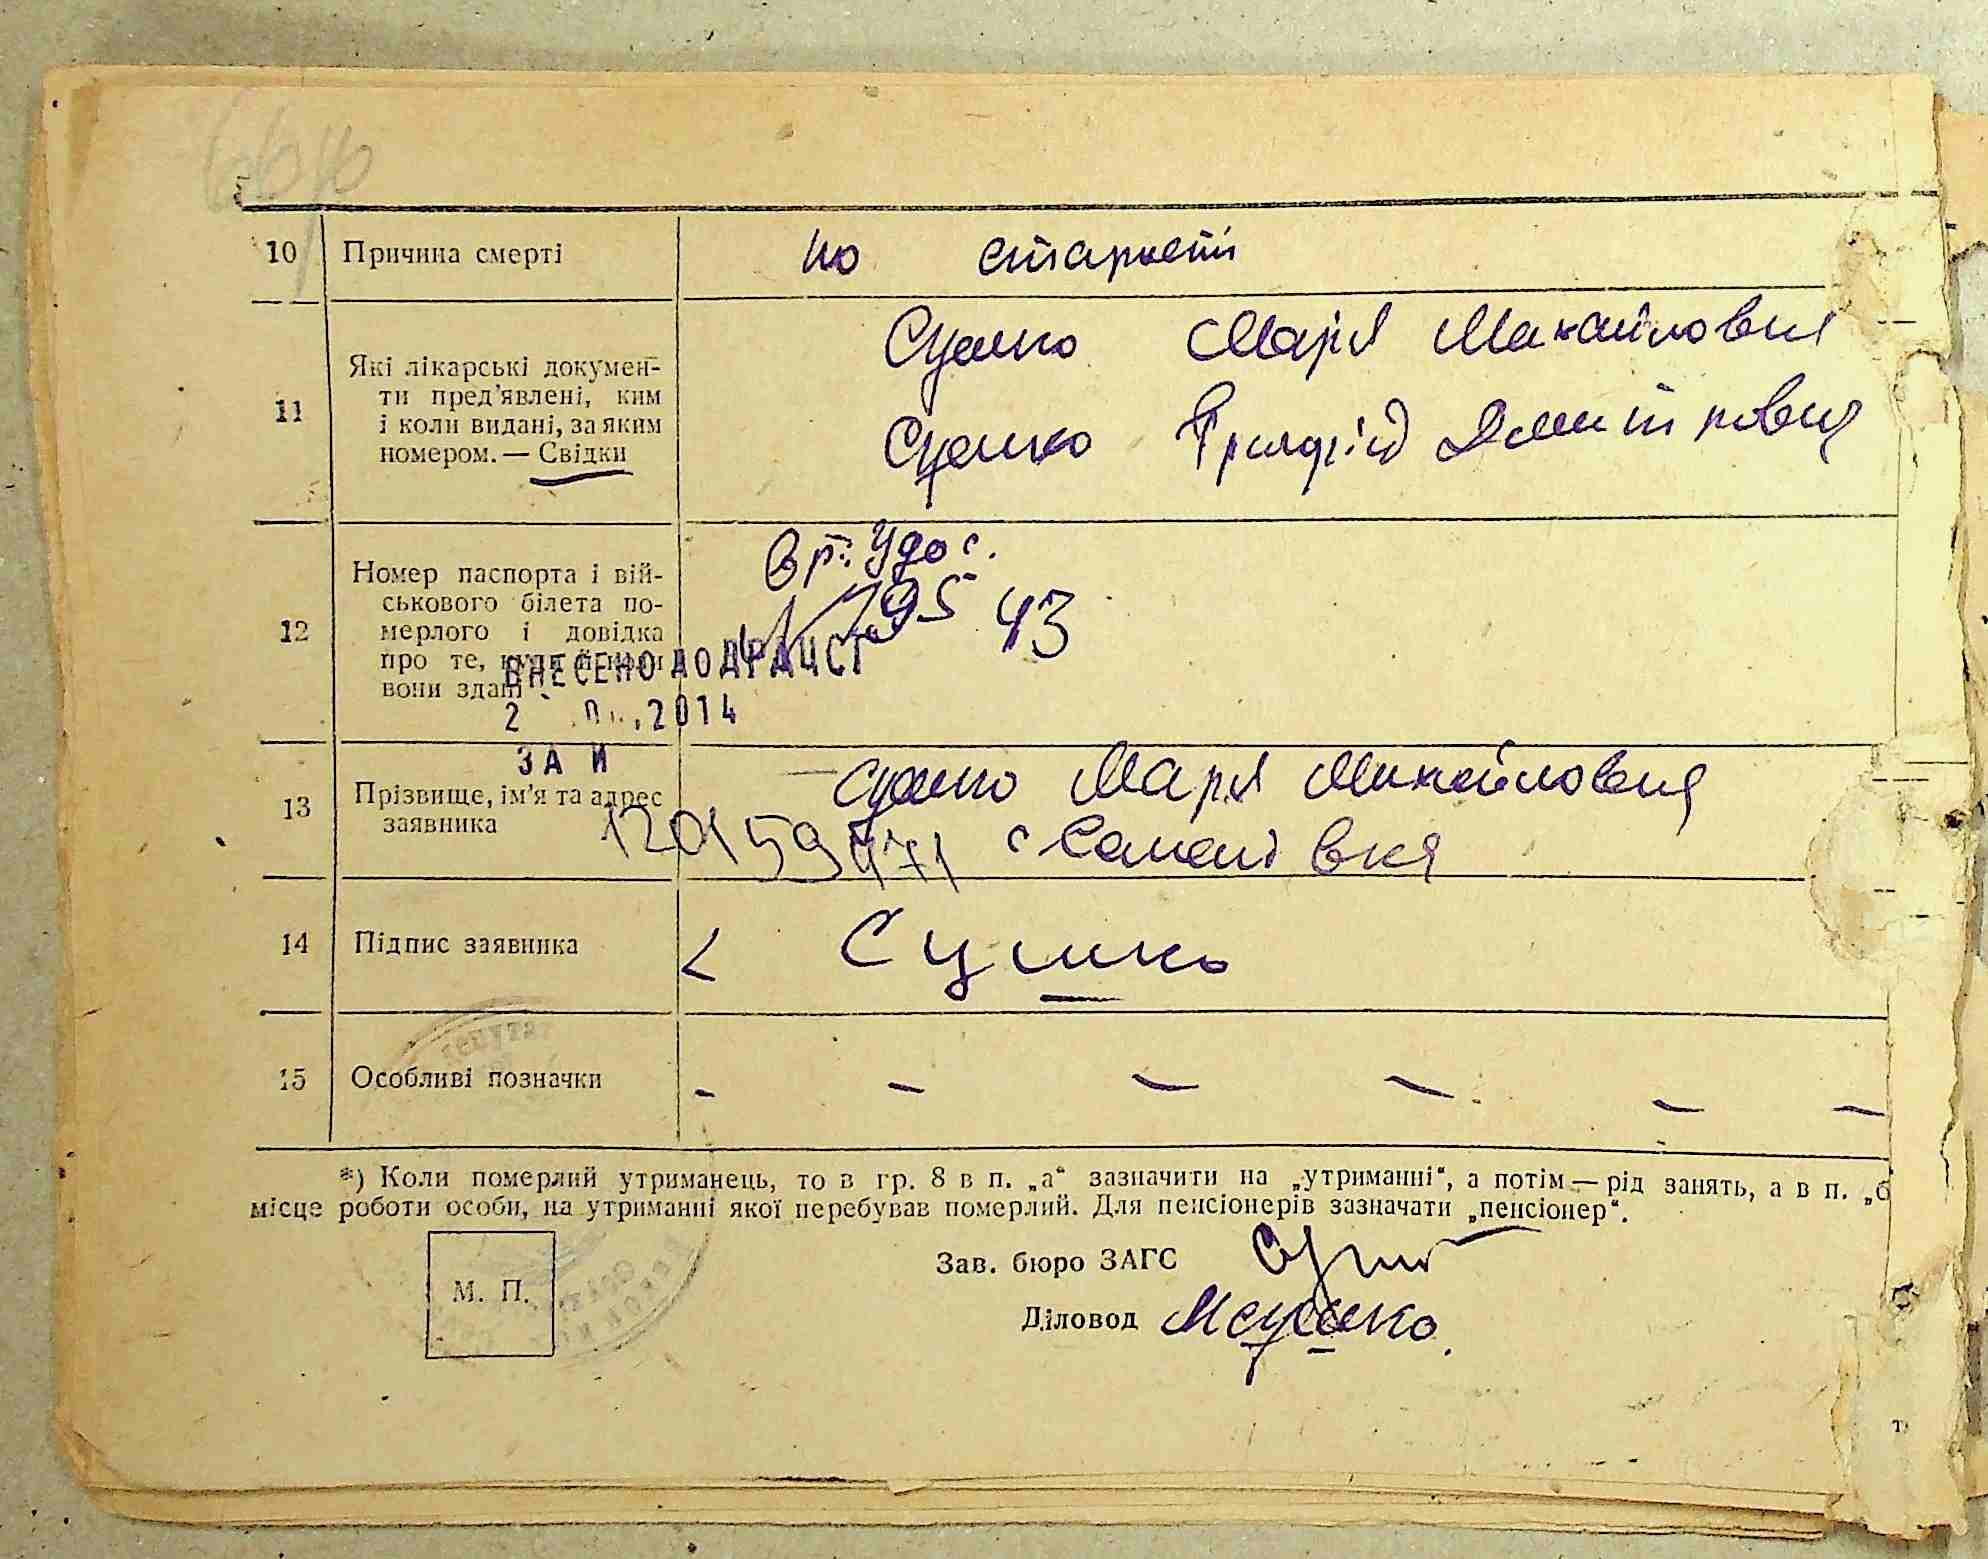 10 Причина смерті по старюсті
11 Які лікарські докумен-
ти пред'явлені, ким
і коли видані, за яким
номером. — Свідки
Сушко Марія Михайловня
Сушко Дмитровня
12 Номер паспорта і вій-
ськового білета по-
мерлого і довідка
про те,
вони здані
вр. Удос.
795 43
ВНЕСЕНО ДО ДРАЦСГ
2 2014
ЗА И
13 Прізвище, ім'я та адрес
заявника
Сушко Марія Михайловня
с
120159471
14 Підпис заявника
Сушко
15 Особливі позначки
- - - - - -
*) Коли померлий утриманець, то в гр. 8 в п. „а“ зазначити на „утриманні“, а потім — рід занять, а в п. „б
місце роботи особи, на утриманні якої перебував померлий. Для пенсіонерів зазначати „пенсіонер“.
М. П.
Зав. бюро ЗАГС
Діловод